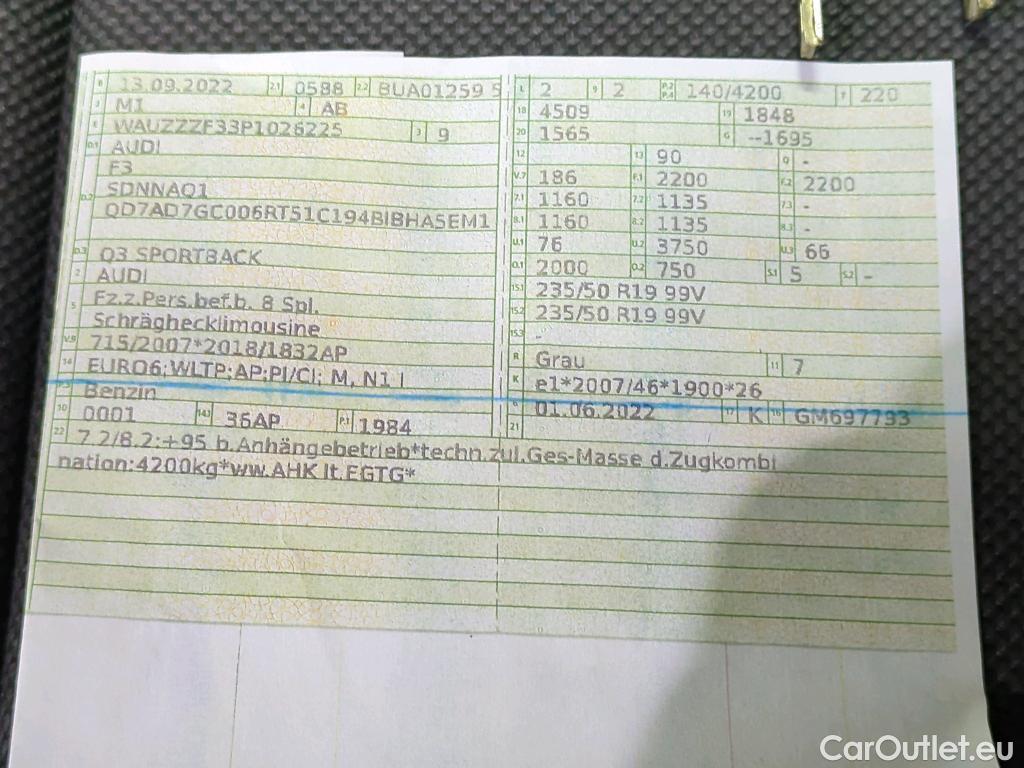 B 13.09.2022 2.1 0588 2.2 BUA01259 5
J M1 4 AB
E WAUZZZF33P1026225 3 9
D.1 AUDI
F3
D.2 SDNNAQ1
QD7AD7GC006RT51C194BIBHASEM1
D.3 Q3 SPORTBACK
2 AUDI
5 Fz.z.Pers.bef.b. 8 Spl.
Schrägheckllmousine
V.9 715/2007*2018/1832AP
14 EURO6;WLTP;AP;PI/CI; M, N1 I
P.3 Benzin
10 0001 14.1 36AP P.1 1984
L 2 9 2 P.2 P.4 140/4200 T 220
18 4509 19 1848
20 1565 G --1695
12 13 90 Q -
V.7 186 F.1 2200 F.2 2200
7.1 1160 7.2 1135 7.3 -
8.1 1160 8.2 1135 8.3 -
U.1 76 U.2 3750 U.3 66
O.1 2000 O.2 750 S.1 5 S.2 -
15.1 235/50 R19 99V
15.2 235/50 R19 99V
15.3 -
R Grau 11 7
K e1*2007/46*1900*26
6 01.06.2022 17 K 16 GM697793
21
22 7.2/8.2:+95 b.Anhängebetrieb*techn.zul.Ges-Masse d.Zugkombi
nation:4200kg*ww.AHK lt.EGTG*
CarOutlet.eu